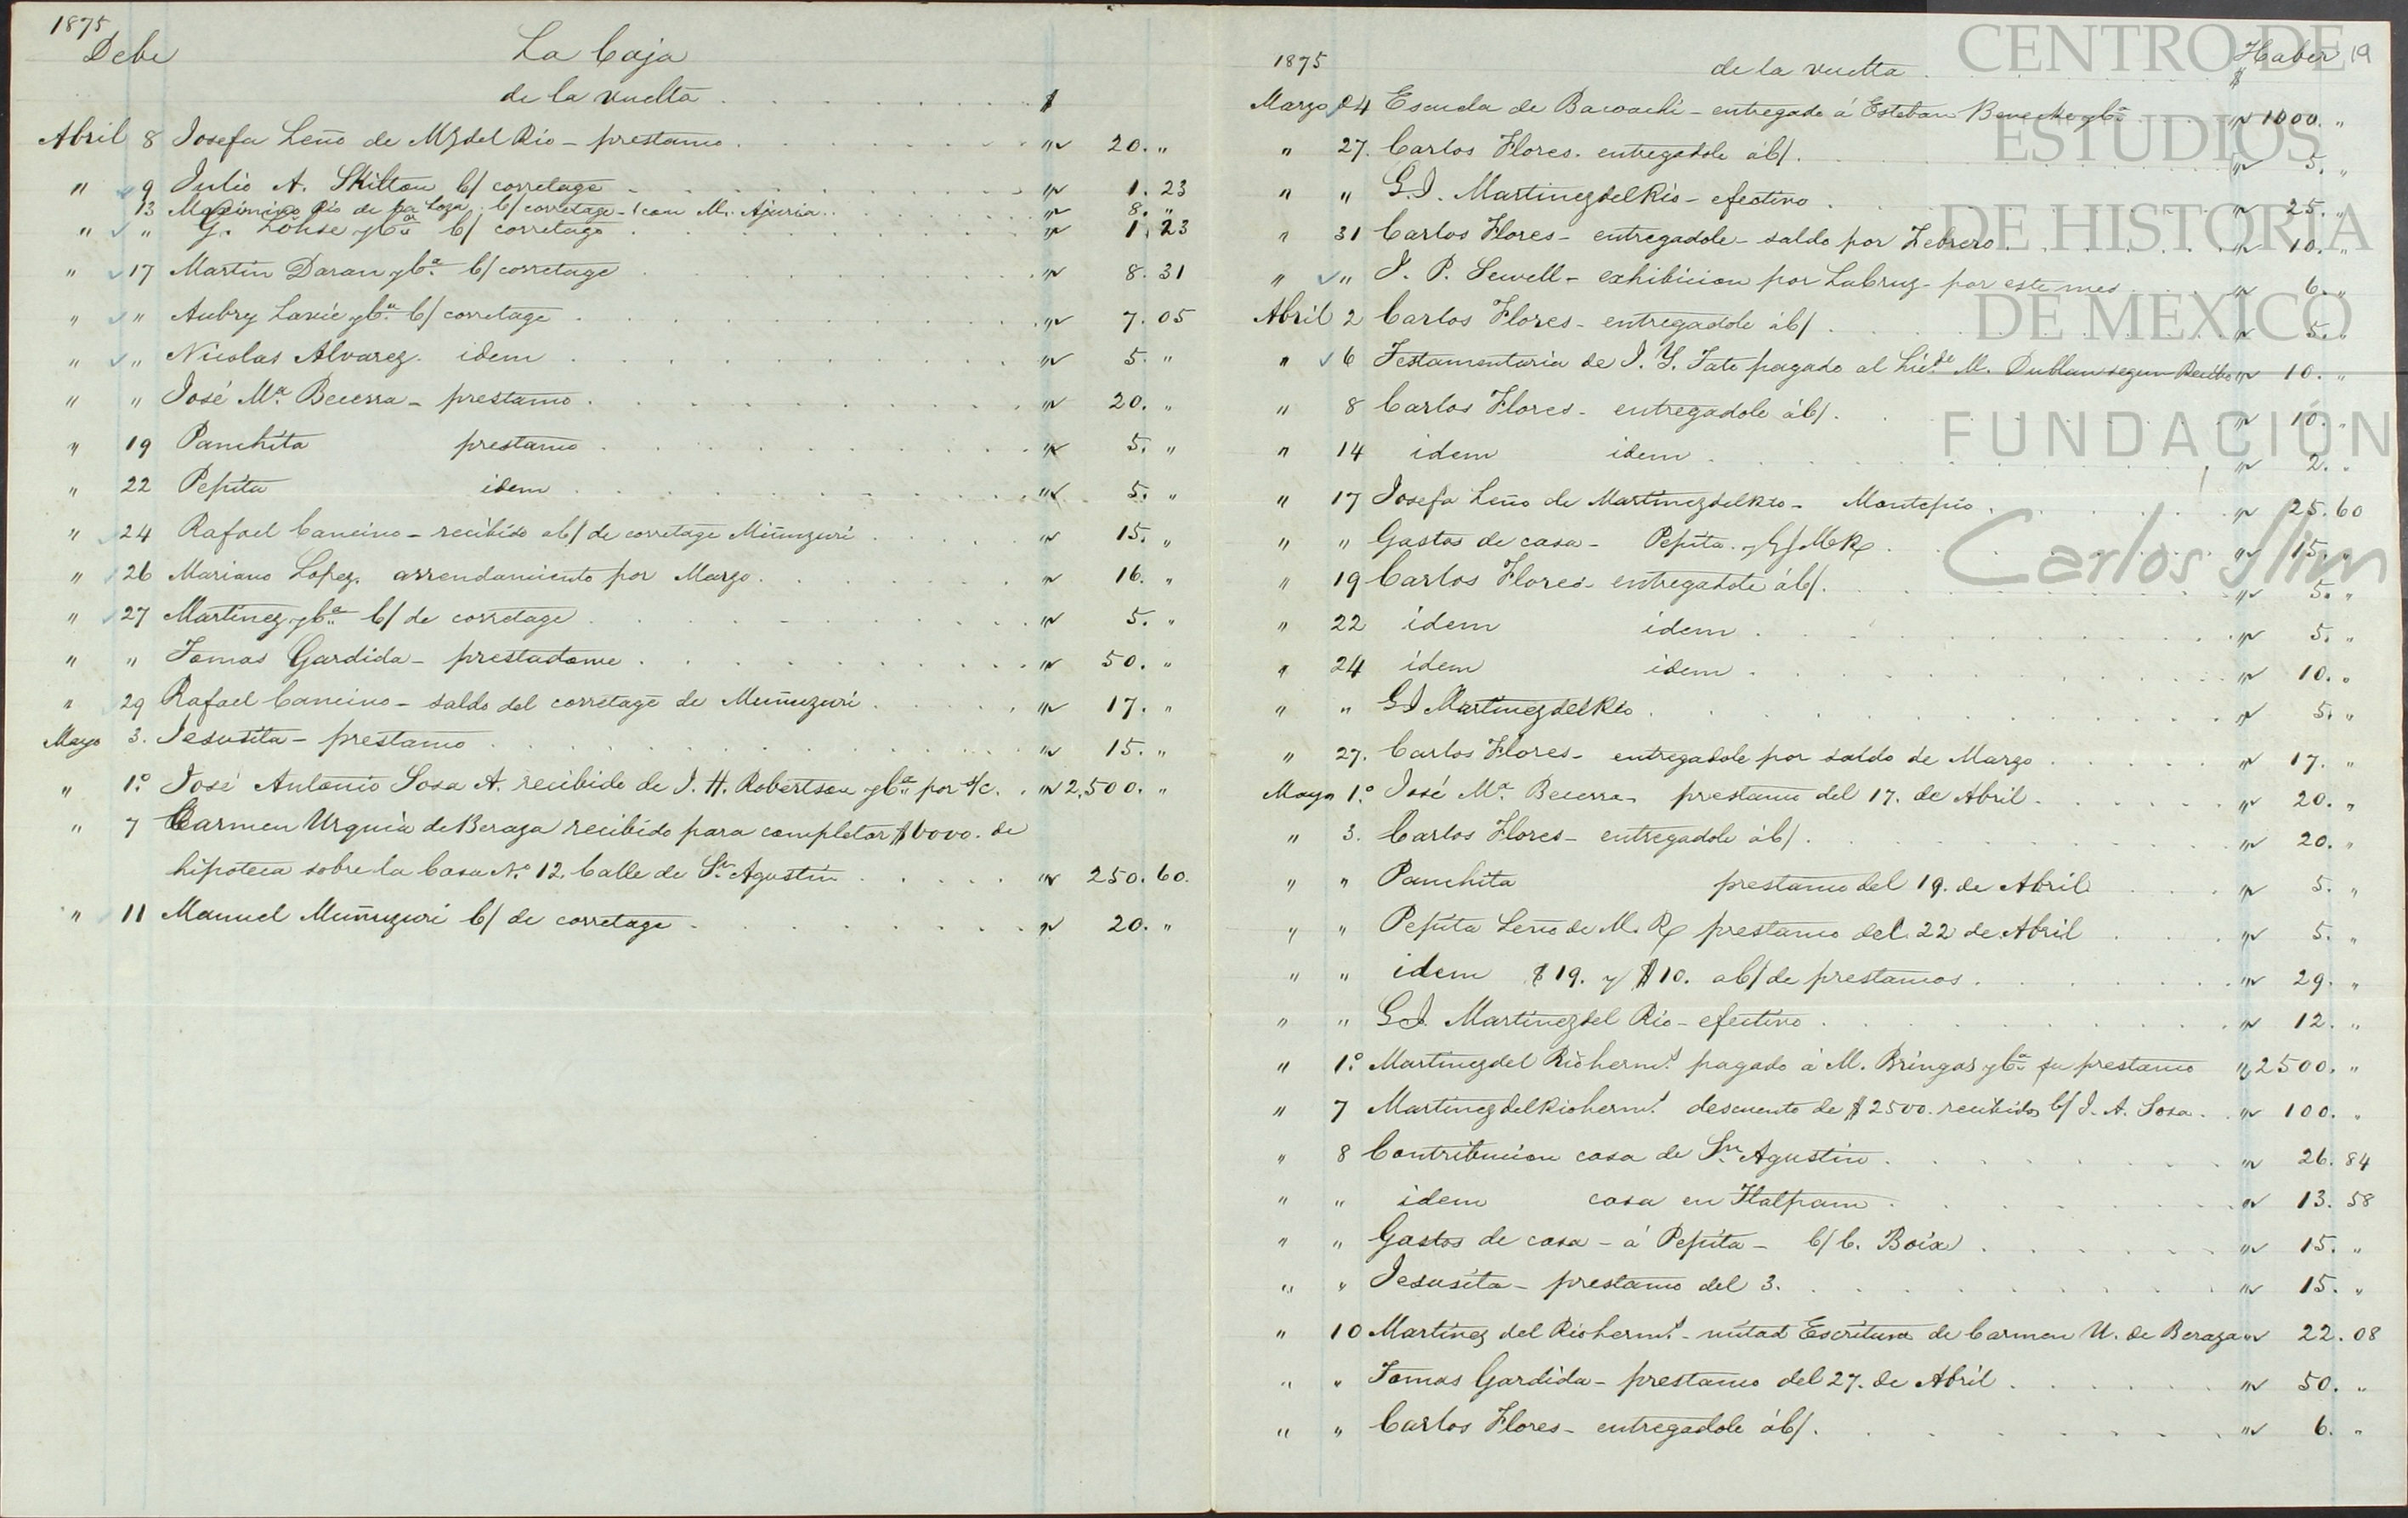 1875
Debe La Caja
de la vuelta $
Abril 8 Josefa Leño de Mz del Rio - prestamo " 20. "
" 9 Julio A. Skilton C/ corretage " 1. 23
13 Maximino Rio de la Loza C/ corretage - con M. Ajuria " 8. "
" " G. Lohse y Ca. C/ corretage " 1. 23
" 17 Martin Daran y Ca. C/ corretage " 8. 31
" " Aubry Lavie y Ca. C/ corretage " 7. 05
" " Nicolas Alvarez. idem " 5. "
" " José Ma. Becerra - prestamo " 20. "
" 19 Panchita prestamo " 5. "
" 22 Pepita idem " 5. "
" 24 Rafael Cancino - recibido a/C/ de corretage Muñuzuri " 15. "
" 26 Mariano Lopez. arrendamiento por Marzo " 16. "
" 27 Martinez y Ca. C/ de corretage " 5. "
" " Tomas Gardida - prestadome " 50. "
" 29 Rafael Cancino - saldo del corretage de Muñuzuri " 17. "
Mayo 3. Jesusita - prestamo " 15. "
" 1.º José Antonio Sosa A. recibido de J. H. Robertson y Ca. por s/c. " 2,500. "
" 7 Carmen Urquia de Beraza recibido para completar $6000. de
hipoteca sobre la Casa No. 12. Calle de Sn. Agustin " 250. 60.
" 11 Manuel Muñuzuri C/ de corretage " 20. "
1875 de la vuelta Haber 19
$
Marzo 24 Escuela de Bacoachi - entregado á Esteban Benecke y Ca. " 1000. "
" 27. Carlos Flores. entregadole áC/. " 5. "
" " G.J. Martinez del Rio - efectivo " 25. "
" 31 Carlos Flores - entregadole - saldo por Febrero " 10. "
" " J. P. Sewell - exhibicion por Labruz - por este mes " 6. "
Abril 2 Carlos Flores - entregadole áC/ " 5. "
" 6 Testamentaria de J. Y. Tato pagado al Licdo. M. Dublan segun Recibo " 10. "
" 8 Carlos Flores - entregadole áC/. " 10. "
" 14 idem idem " 2. "
" 17 Josefa Leño de Martinez del Rio - Montepio " 25. 60
" " Gastos de casa - Pepita. " 15. "
" 19 Carlos Flores - entregadole áC/. " 5. "
" 22 idem idem " 5. "
" 24 idem idem " 10. "
" " G J Martinez del Rio " 5. "
" 27. Carlos Flores - entregadole por saldo de Marzo " 17. "
Mayo 1.º José Ma. Becerra - prestamo del 17. de Abril " 20. "
" 3. Carlos Flores - entregadole áC/. " 20. "
" " Panchita prestamo del 19. de Abril " 5. "
" " Pepita Leño de M. R. prestamo del 22 de Abril " 5. "
" " idem $19. y $10. aC/ de prestamos " 29. "
" " G J. Martinez del Rio - efectivo " 12. "
" 1.º Martinez del Rio herms. pagado á M. Bringas y Ca. su prestamo " 2500. "
" 7 Martinez del Rio herms. descuento de $2500. recibidos C/ J. A. Sosa " 100. "
" 8 Contribucion casa de Sn. Agustin " 26. 84
" " idem casa en Tlalpam " 13. 58
" " Gastos de casa - á Pepita - C/ C. Boix " 15. "
" " Jesusita - prestamo del 3. " 15. "
" 10 Martinez del Rio herms. - mitad Escritura de Carmen U. de Beraza " 22. 08
" " Tomas Gardida - prestamo del 27. de Abril " 50. "
" " Carlos Flores - entregadole áC/. " 6. "
CENTRO DE
ESTUDIOS
DE HISTORIA
DE MEXICO
FUNDACIÓN
Carlos Slim